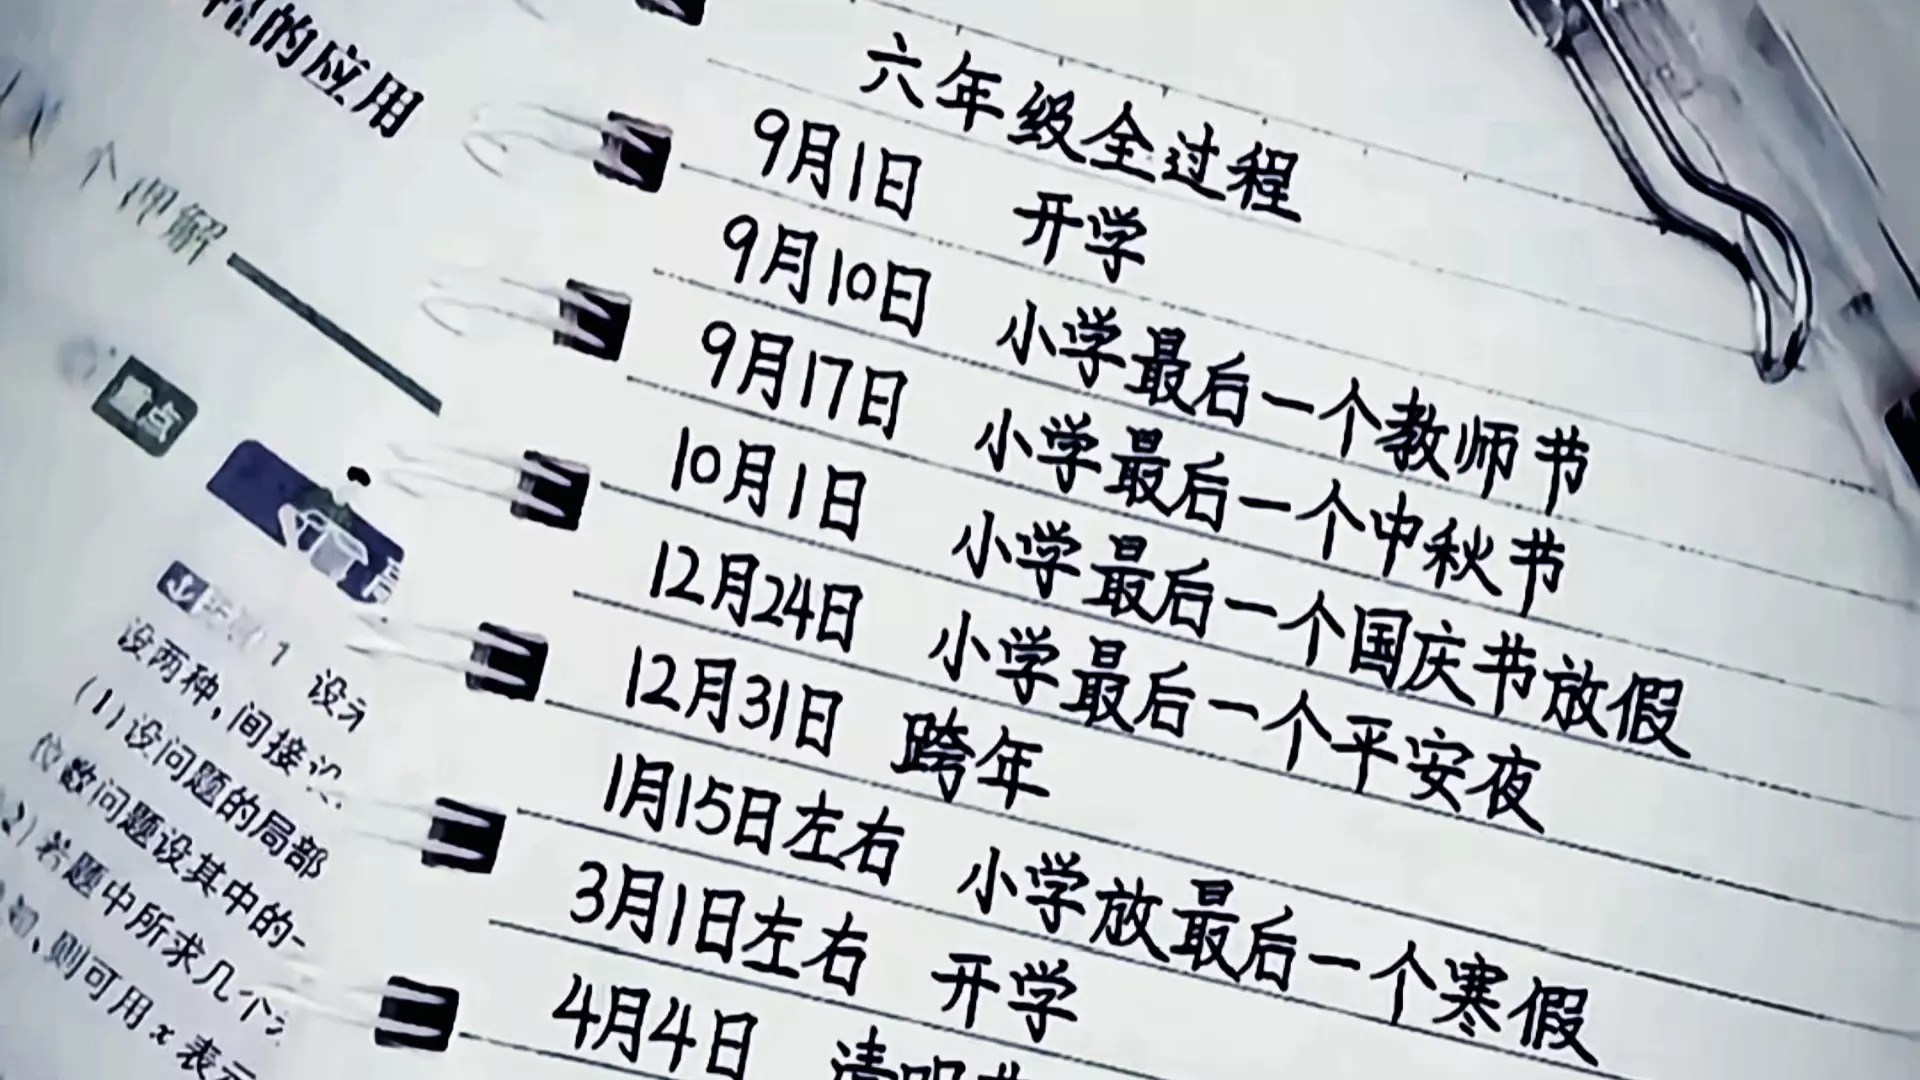 六年级全过程
9月1日 开学
9月10日 小学最后一个教师节
9月17日 小学最后一个中秋节
10月1日 小学最后一个国庆节放假
12月24日 小学最后一个平安夜
12月31日 跨年
1月15日左右 小学放最后一个寒假
3月1日左右 开学
4月4日 清明节
的应用
解
重点
1 设
设两种,间接
(1)设问题的局部
位数问题设其中的一
2)若题中所求几个
则可用x表示